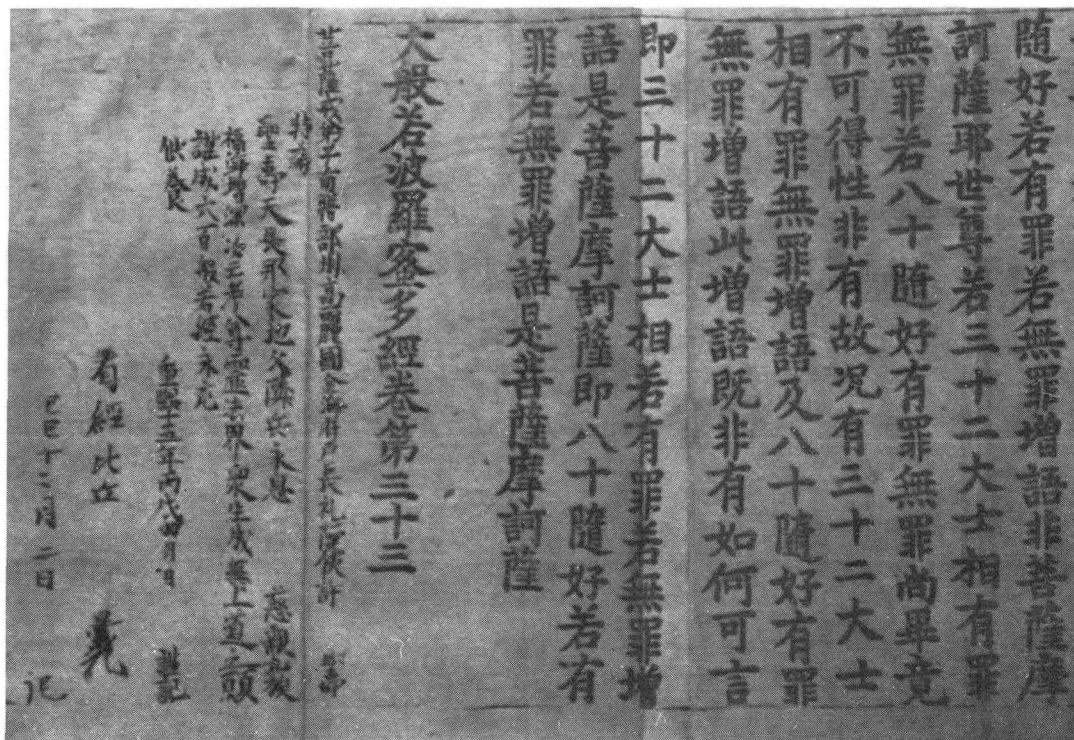 随好若有罪若無罪增語非菩薩摩
訶薩耶世尊若三十二大士相有罪
無罪若八十隨好有罪無罪尚畢竟
不可得性非有故况有三十二大士
相有罪無罪增語及八十隨好有罪
無罪增語此增語既非有如何可言
即三十二大士相若有罪若無罪增
語是菩薩摩訶薩即八十隨好若有
罪若無罪增語是菩薩摩訶薩
大般若波羅蜜多經卷第三十三
菩薩戒弟子南贍部州高麗國金海府戶長礼院使許
特為
聖壽天長邦家地久隣兵永息
福海增深法界生成無上道之願
謹成六百般若經永充
供養
重熙十五年丙戌四月日 謹記
看經比丘
己巳十二月二日 記